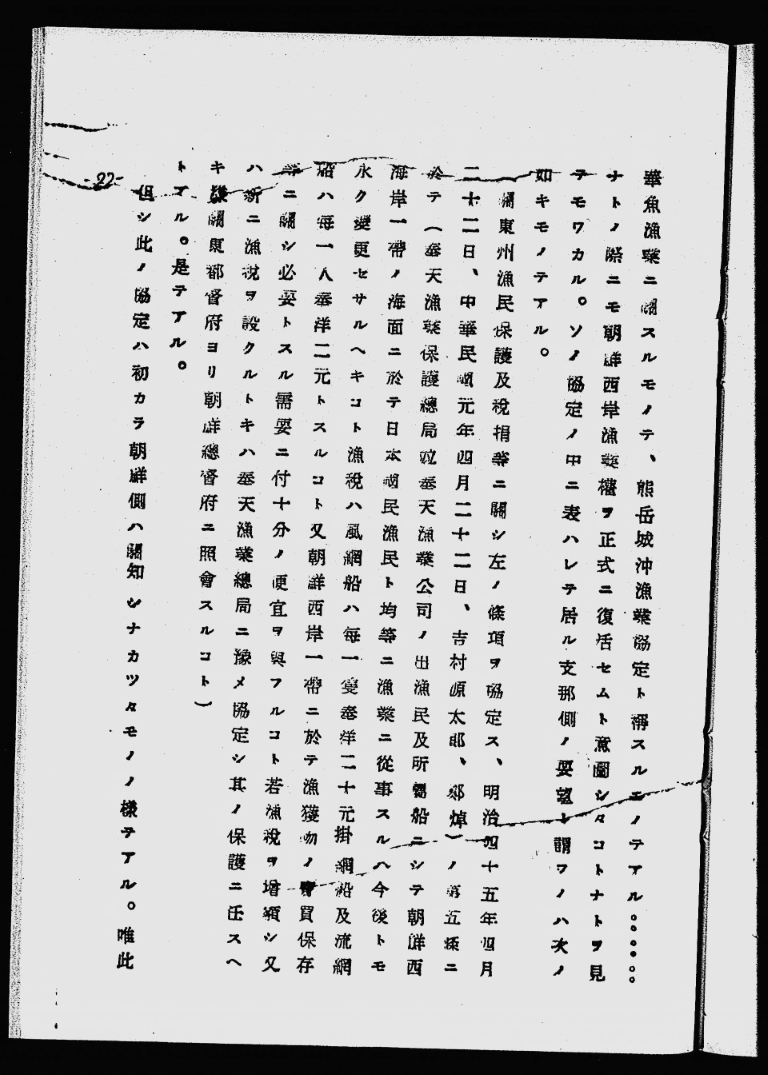 華魚漁業ニ關スルモノテ、熊岳城沖漁業協定ト稱スルモノテアル。。。。。。
ナトノ際ニモ朝鮮西岸漁業權ヲ正式ニ復活セムト意圖シタコトナトヲ見
テモワカル。ソノ協定ノ中ニ表ハレテ居ル支那側ノ要望ト謂フノハ次ノ
如キモノテアル。
關東州漁民保護及稅捐等ニ關シ左ノ條項ヲ協定ス、明治四十五年四月
二十二日、中華民國元年四月二十二日、吉村源太郎、鄭焯)ノ第五條ニ
於テ(奉天漁業保護總局竝奉天漁業公司ノ出漁民及所屬船ニシテ朝鮮西
海岸一帶ノ海面ニ於テ日本國民漁民ト均等ニ漁業ニ從事スルハ今後トモ
永ク變更セサルヘキコト漁稅ハ風網船ハ每一隻奉洋二十元掛網船及流網
船ハ每一人奉洋二元トスルコト又朝鮮西岸一帶ニ於テ漁獲物ノ賣買保存
等ニ關シ必要トスル需要ニ付十分ノ便宜ヲ與フルコト若漁稅ヲ增額シ又
ハ新ニ漁稅ヲ設クルトキハ奉天漁業總局ニ豫メ協定シ其ノ保護ニ任スヘ
キ樣關東都督府ヨリ朝鮮總督府ニ照會スルコト)
トアル。是テアル。
但シ此ノ協定ハ初カラ朝鮮側ハ關知シナカツタモノノ樣テアル。唯此
-22-